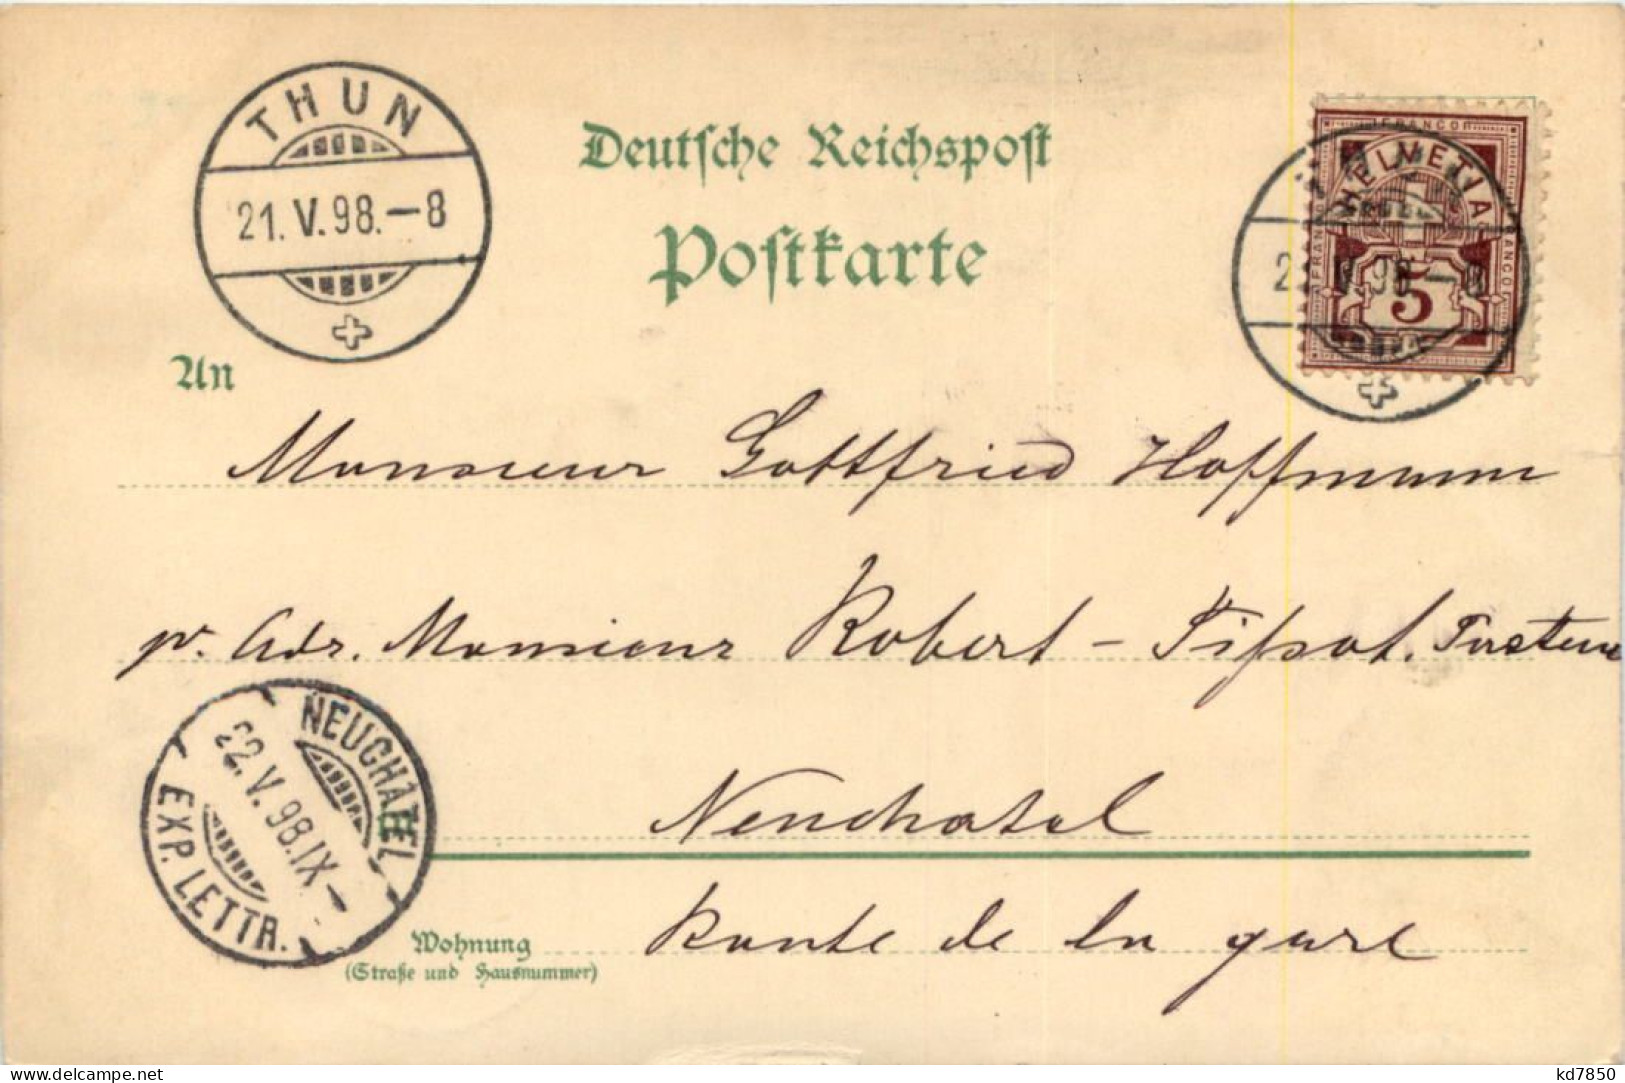 THUN
21.V.98.–8
Deutsche Reichspost
Postkarte
FRANCO
HELVETIA
5
98.–8
An
Monsieur Gottfried Hoffmann
pr. Adr. Monsieur Robert – Tissot.
NEUCHATEL
22.V.98.IX–
EXP. LETTR.
Neuchatel
Wohnung
(Straße und Hausnummer)
Route de la gare
Delcampe.net
kd7850